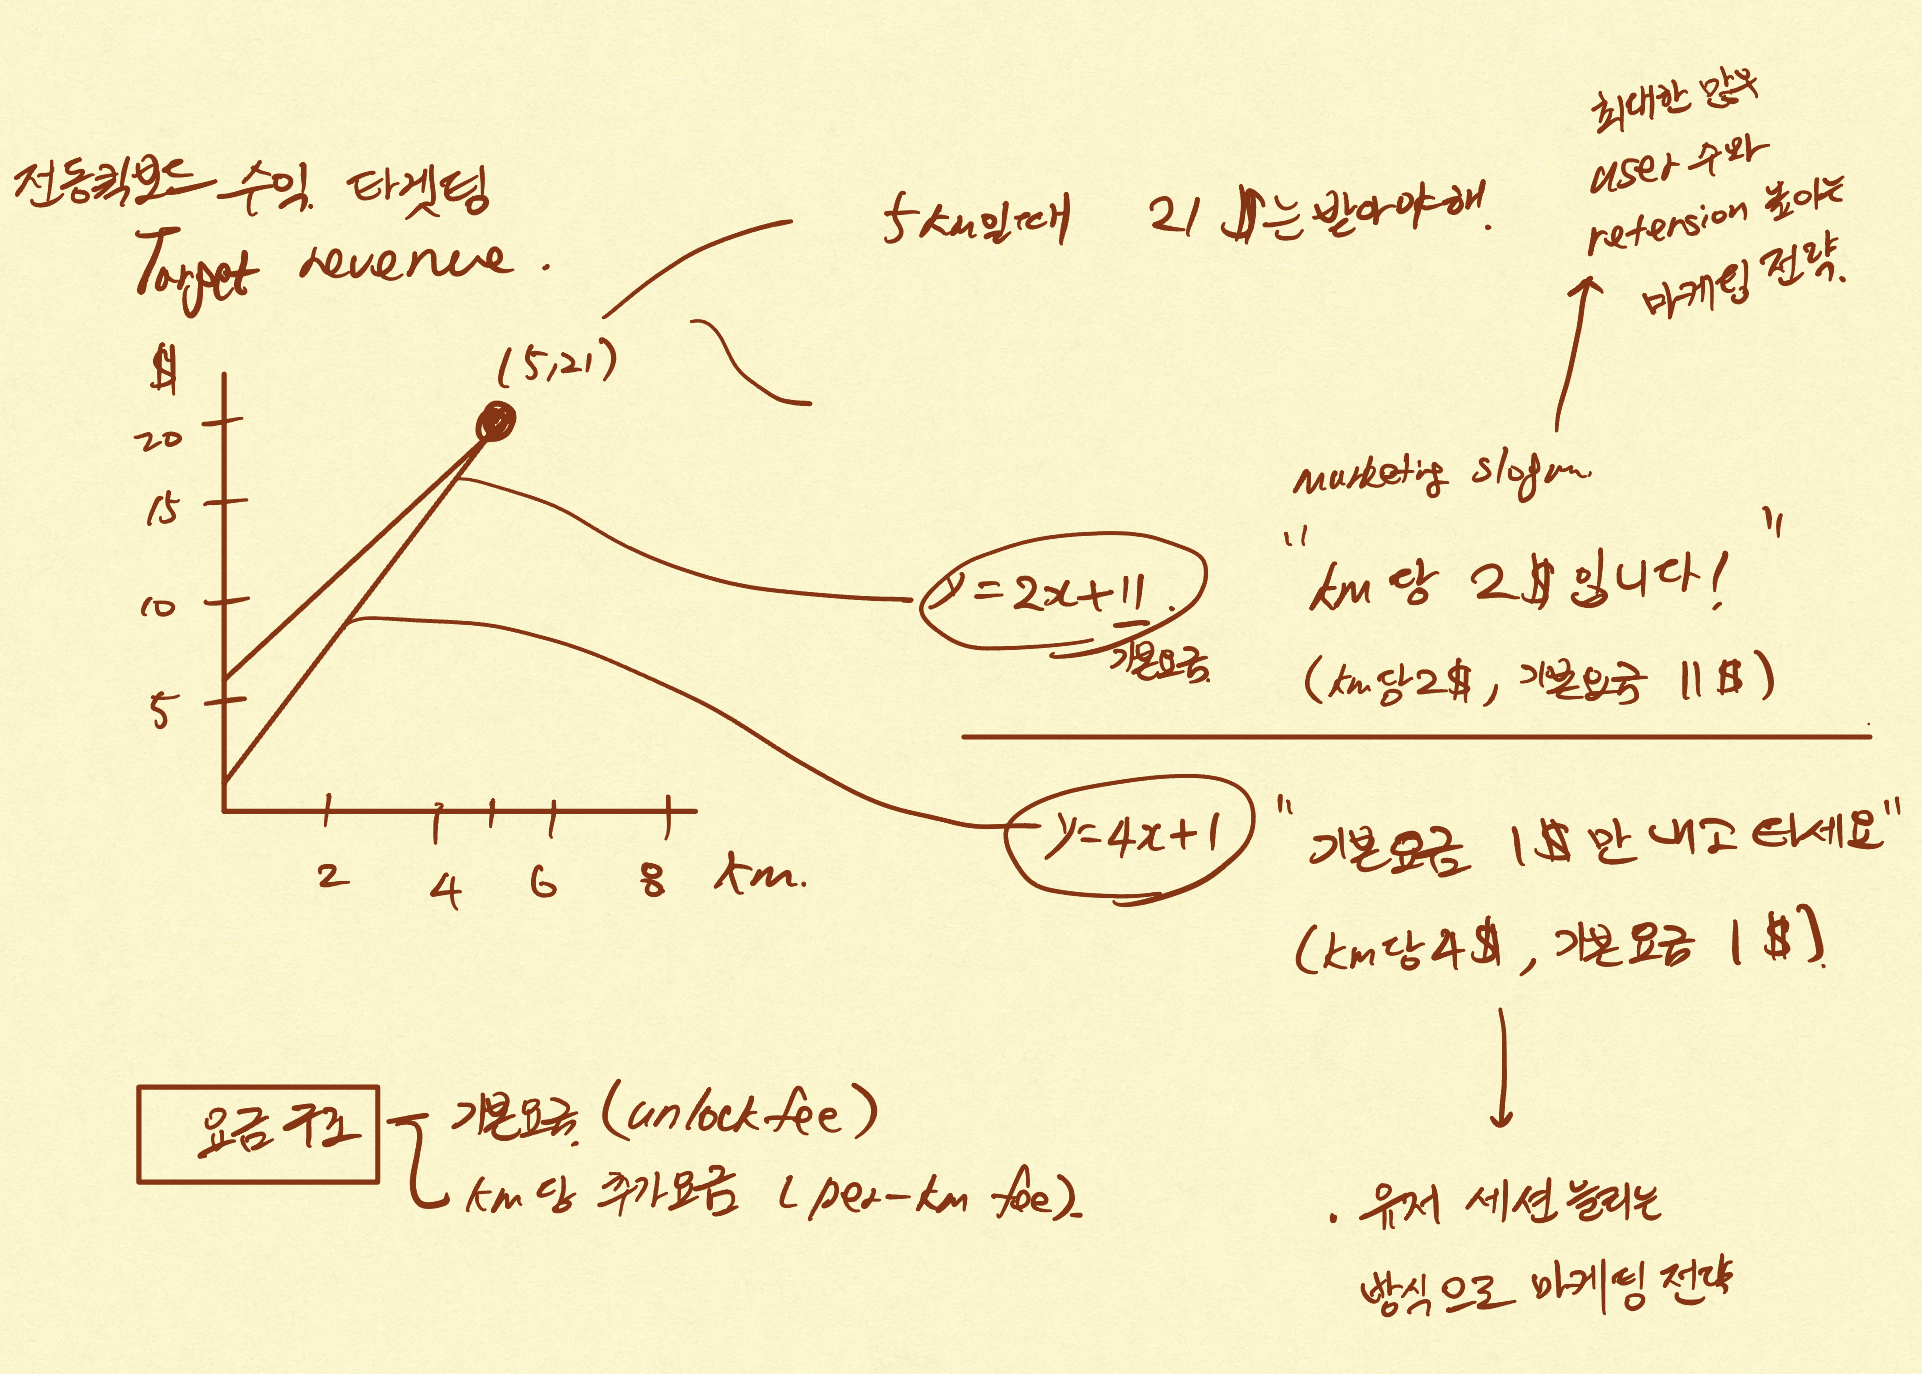 전동킥보드 수익 타겟팅
Target revenue.
5km일때 21 $는 받아야해.
최대한 많은
user 수와
retension 높이는
마케팅 전략.
$
(5,21)
20
15
10
5
2 4 6 8 km.
marketing slogan.
y=2x+11.
기본요금.
"km당 2$입니다!"
(km당2$, 기본요금 11$)
y=4x+1
"기본요금 1$만 내고 타세요"
(km당4$, 기본요금 1$).
요금 구조
기본요금. (unlock fee)
km당 추가요금 (per-km fee).
. 유저 세션 늘리는
방식으로 마케팅 전략